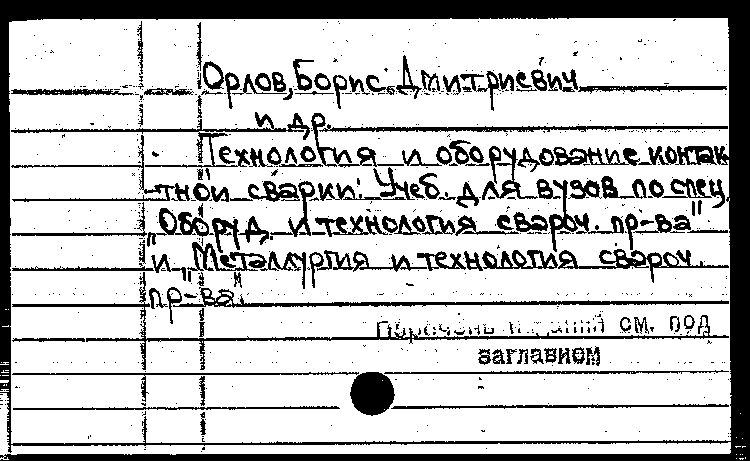 Орлов, Борис Дмитриевич
и др.
Технология и оборудование контак-
тной сварки: Учеб. для вузов по спец.
"Оборуд. и технология свароч. пр-ва"
и "Металлургия и технология свароч.
пр-ва".
Перечень изданий см. под
заглавием